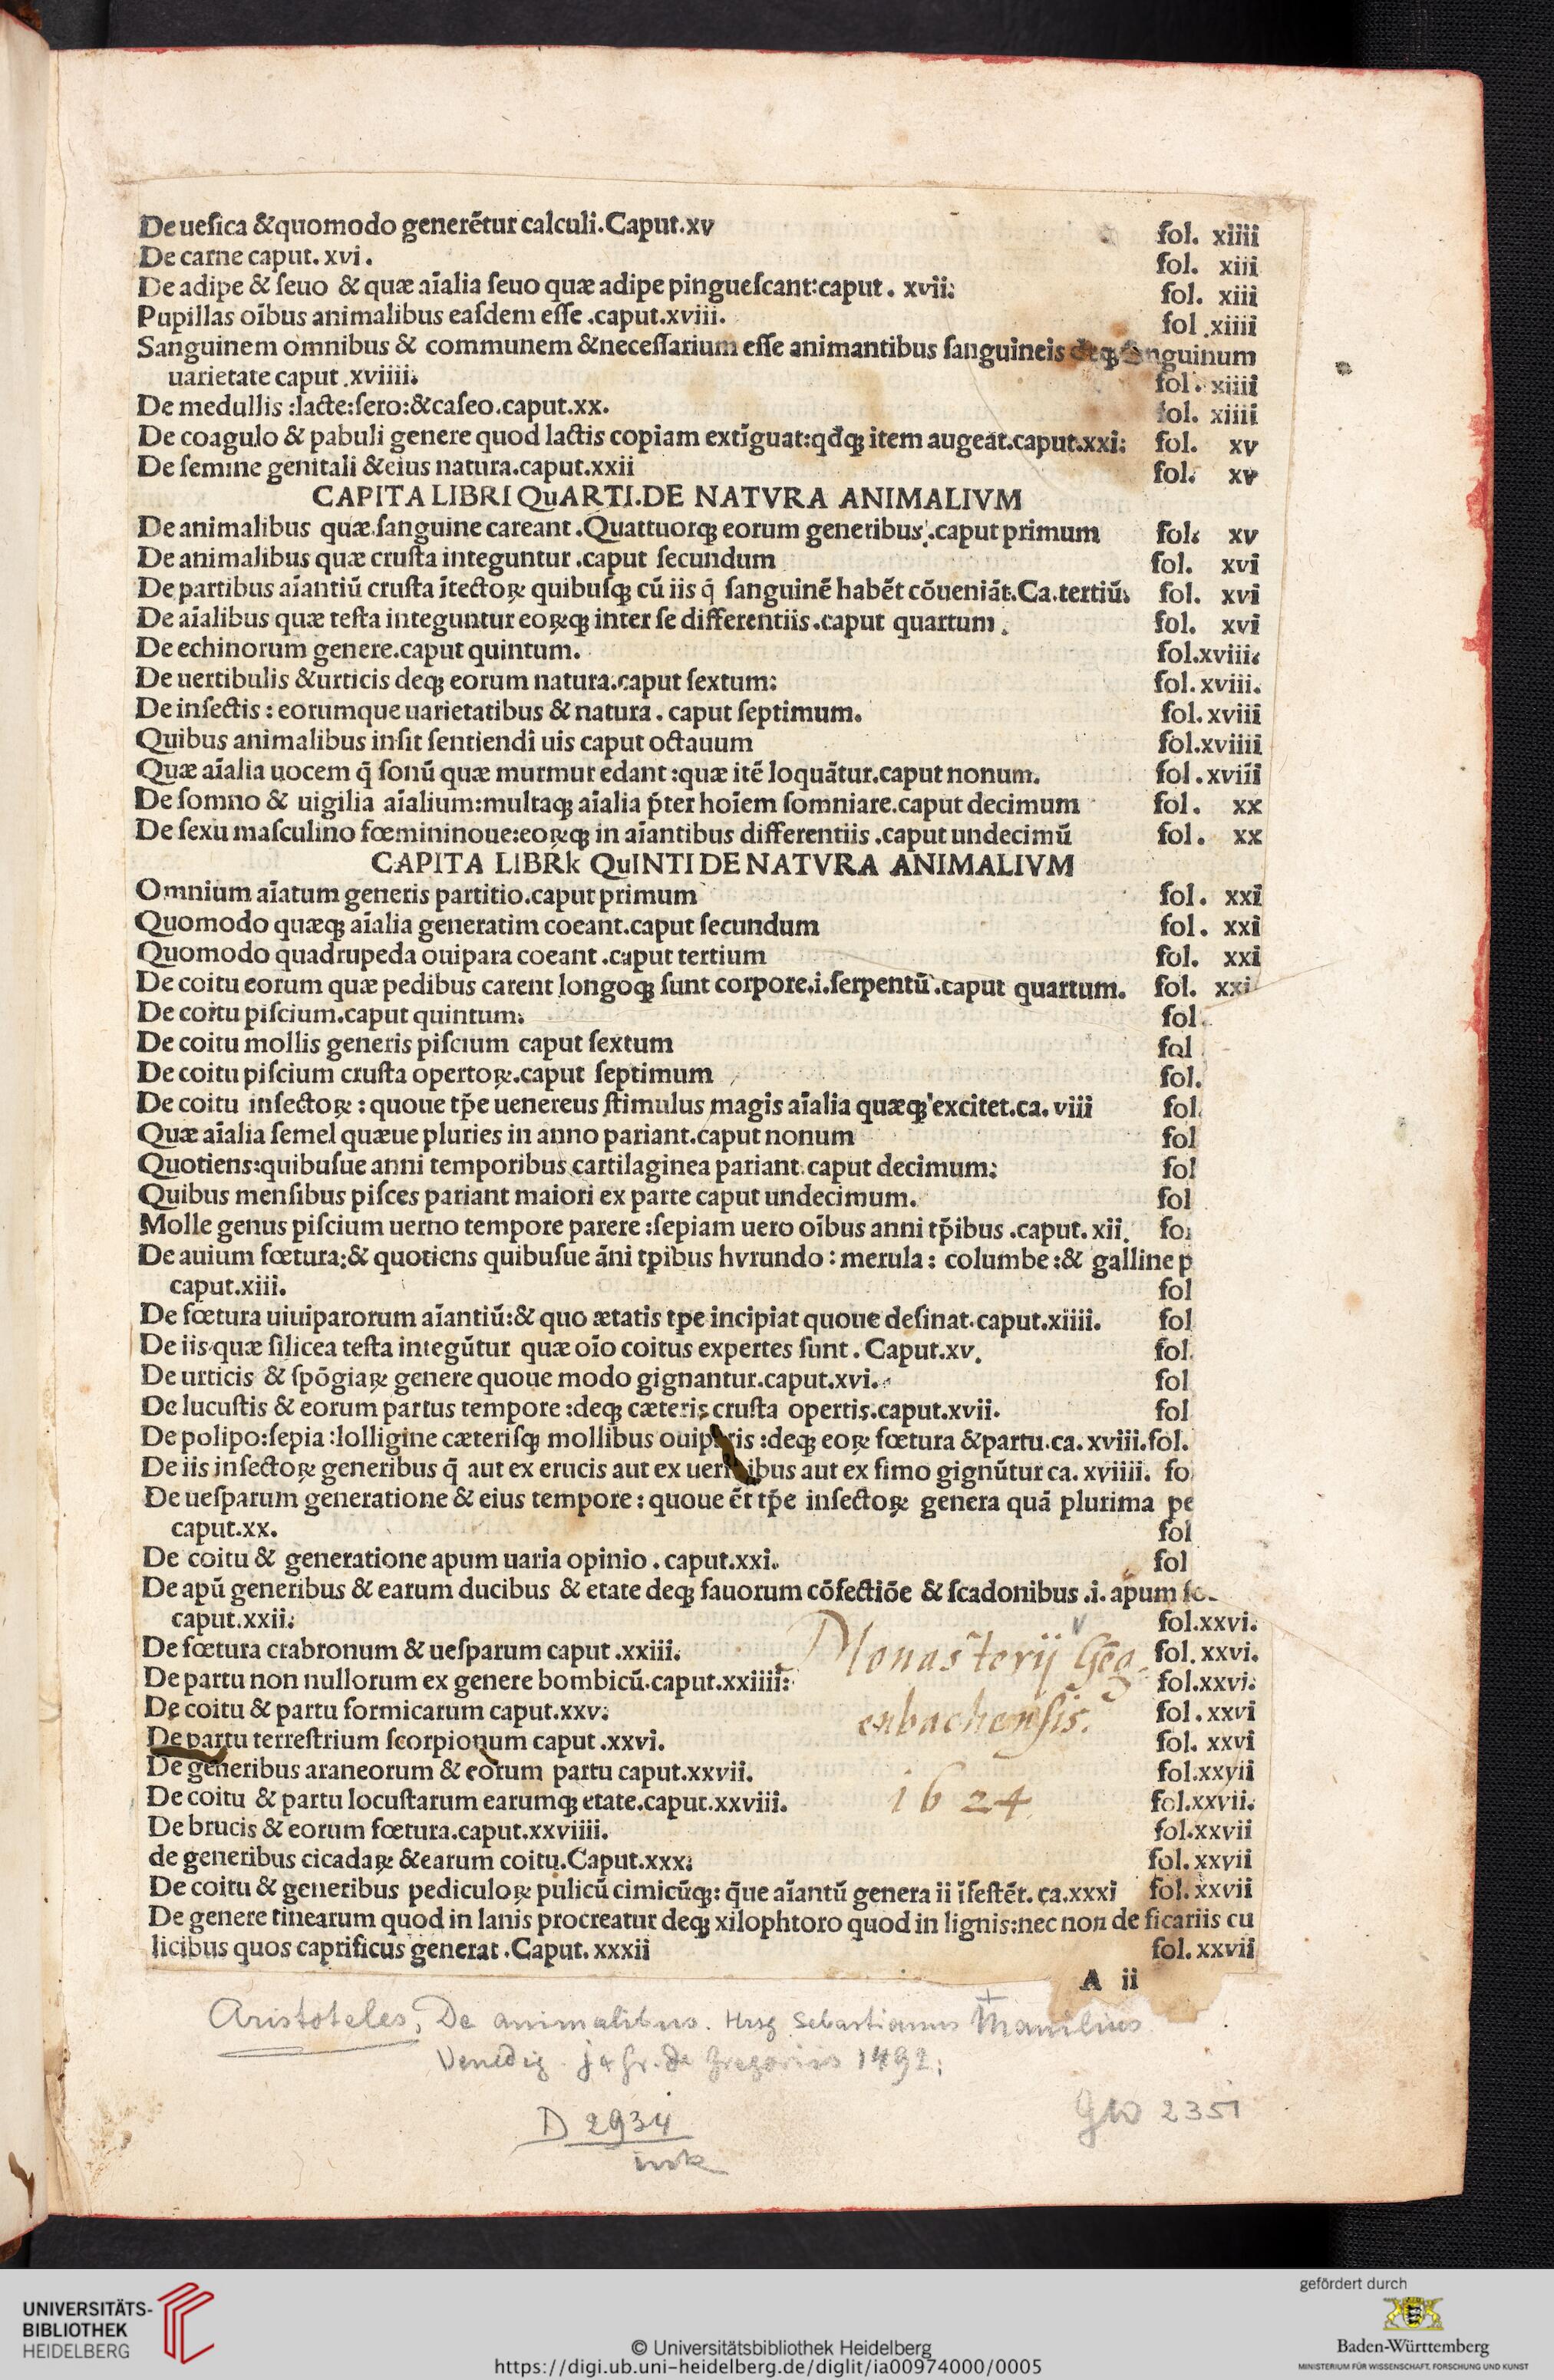 De uesica &quomodo generẽtur calculi.Caput.xv fol. xiiii
De carne caput. xvi. fol. xiii
De adipe & seuo & quæ aĩalia seuo quæ adipe pinguescant:caput. xvii: fol. xiii
Pupillas oĩbus animalibus easdem esse .caput.xviii. fol .xiiii
Sanguinem omnibus & communem &necessarium esse animantibus sanguineis deqꝫ sanguinum
uarietate caput .xviiii. fol. xiiii
De medullis :lacte:sero:&caseo.caput.xx. fol. xiiii
De coagulo & pabuli genere quod lactis copiam extĩguat:qđqꝫ item augeat.caput.xxi: fol. xv
De semine genitali &eius natura.caput.xxii fol. xv
CAPITA LIBRI QuARTI.DE NATVRA ANIMALIVM
De animalibus quæ.sanguine careant .Quattuorqꝫ eorum generibus.caput primum fol. xv
De animalibus quæ crusta integuntur .caput secundum fol. xvi
De partibus aĩantiũ crusta ĩtectoꝝ quibusqꝫ cũ iis q̃ sanguinẽ habẽt cõueniãt.Ca.tertiũ. fol. xvi
De aĩalibus quæ testa integuntur eoꝝqꝫ inter se differentiis .caput quartum. fol. xvi
De echinorum genere.caput quintum. fol.xviii.
De uertibulis &urticis deqꝫ eorum natura.caput sextum: fol. xviii.
De insectis : eorumque uarietatibus & natura . caput septimum. fol. xviii
Quibus animalibus insit sentiendi uis caput octauum fol.xviiii
Quæ aĩalia uocem q̃ sonũ quæ murmur edant :quæ itẽ loquãtur.caput nonum. fol .xviii
De somno & uigilia aĩalium:multaqꝫ aĩalia p̃ter hoĩem somniare.caput decimum fol. xx
De sexu masculino fœmininoue:eoꝝqꝫ in aĩantibus differentiis .caput undecimũ fol. xx
CAPITA LIBRk QuINTI DE NATVRA ANIMALIVM
Omnium aĩatum generis partitio.caput primum fol. xxi
Quomodo quæqꝫ aĩalia generatim coeant.caput secundum fol. xxi
Quomodo quadrupeda ouipara coeant .caput tertium fol. xxi
De coitu eorum quæ pedibus carent longoqꝫ sunt corpore.i.serpentũ.caput quartum. fol. xxi
De coitu piscium.caput quintum. fol.
De coitu mollis generis piscium caput sextum fol
De coitu piscium crusta opertoꝝ.caput septimum fol.
De coitu insectoꝝ : quoue tp̃e uenereus stimulus magis aĩalia quæqꝫ excitet.ca. viii fol
Quæ aĩalia semel quæue pluries in anno pariant.caput nonum fol
Quotiens:quibusue anni temporibus cartilaginea pariant.caput decimum: fol
Quibus mensibus pisces pariant maiori ex parte caput undecimum. fol
Molle genus piscium uerno tempore parere :sepiam uero oĩbus anni tp̃ibus .caput. xii. fo
De auium fœtura:& quotiens quibusue ãni tpibus hvrundo : merula : columbe :& galline p
caput.xiii. fol
De fœtura uiuiparorum aĩantiũ:& quo ætatis tpe incipiat quoue desinat.caput.xiiii. fol
De iis quæ silicea testa integũtur quæ oĩo coitus expertes sunt . Caput.xv. fol.
De urticis & spõgiaꝝ genere quoue modo gignantur.caput.xvi. fol
De lucustis & eorum partus tempore :deqꝫ cæteris crusta opertis.caput.xvii. fol
De polipo:sepia :lolligine cæterisqꝫ mollibus ouiparis :deqꝫ eoꝝ fœtura &partu.ca. xviii.fol.
De iis insectoꝝ generibus q̃ aut ex erucis aut ex uermibus aut ex fimo gignũtur ca. xviiii. fo
De uesparum generatione & eius tempore : quoue ẽt tp̃e insectoꝝ genera quã plurima pe
caput.xx. fol
De coitu & generatione apum uaria opinio . caput.xxi. fol
De apũ generibus & earum ducibus & etate deqꝫ fauorum cõfectiõe & scadonibus .i. apum
caput.xxii: fol.xxvi.
De fœtura crabronum & uesparum caput .xxiii. fol. xxvi.
De partu non nullorum ex genere bombicũ.caput.xxiiii: fol.xxvi.
De coitu & partu formicarum caput.xxv. fol. xxvi
De partu terrestrium scorpionum caput .xxvi. fol. xxvi
De generibus araneorum & eorum partu caput.xxvii. fol.xxvii
De coitu & partu locustarum earumqꝫ etate.caput.xxviii. fol.xxvii.
De brucis & eorum fœtura.caput.xxviiii. fol.xxvii
de generibus cicadaꝝ &earum coitu.Caput.xxx. fol. xxvii
De coitu & generibus pediculoꝝ pulicũ cimicũqꝫ: q̃ue aĩantũ genera ii ĩfestẽt. ca.xxxi fol. xxvii
De genere tinearum quod in lanis procreatur deqꝫ xilophtoro quod in lignis:nec non de ficariis cu
licibus quos caprificus generat .Caput. xxxii fol. xxvii
A ii
Monasterij Geng
enbachensis.
1624
Aristoteles, De animalibus. Hrsg Sebastianus Manilius
Venedig. J & Gr. de Gregoriis 1492.
D 2934
ink
GW 2351
UNIVERSITÄTS-
BIBLIOTHEK
HEIDELBERG
© Universitätsbibliothek Heidelberg
https://digi.ub.uni-heidelberg.de/diglit/ia00974000/0005
gefördert durch
Baden-Württemberg
MINISTERIUM FÜR WISSENSCHAFT, FORSCHUNG UND KUNST